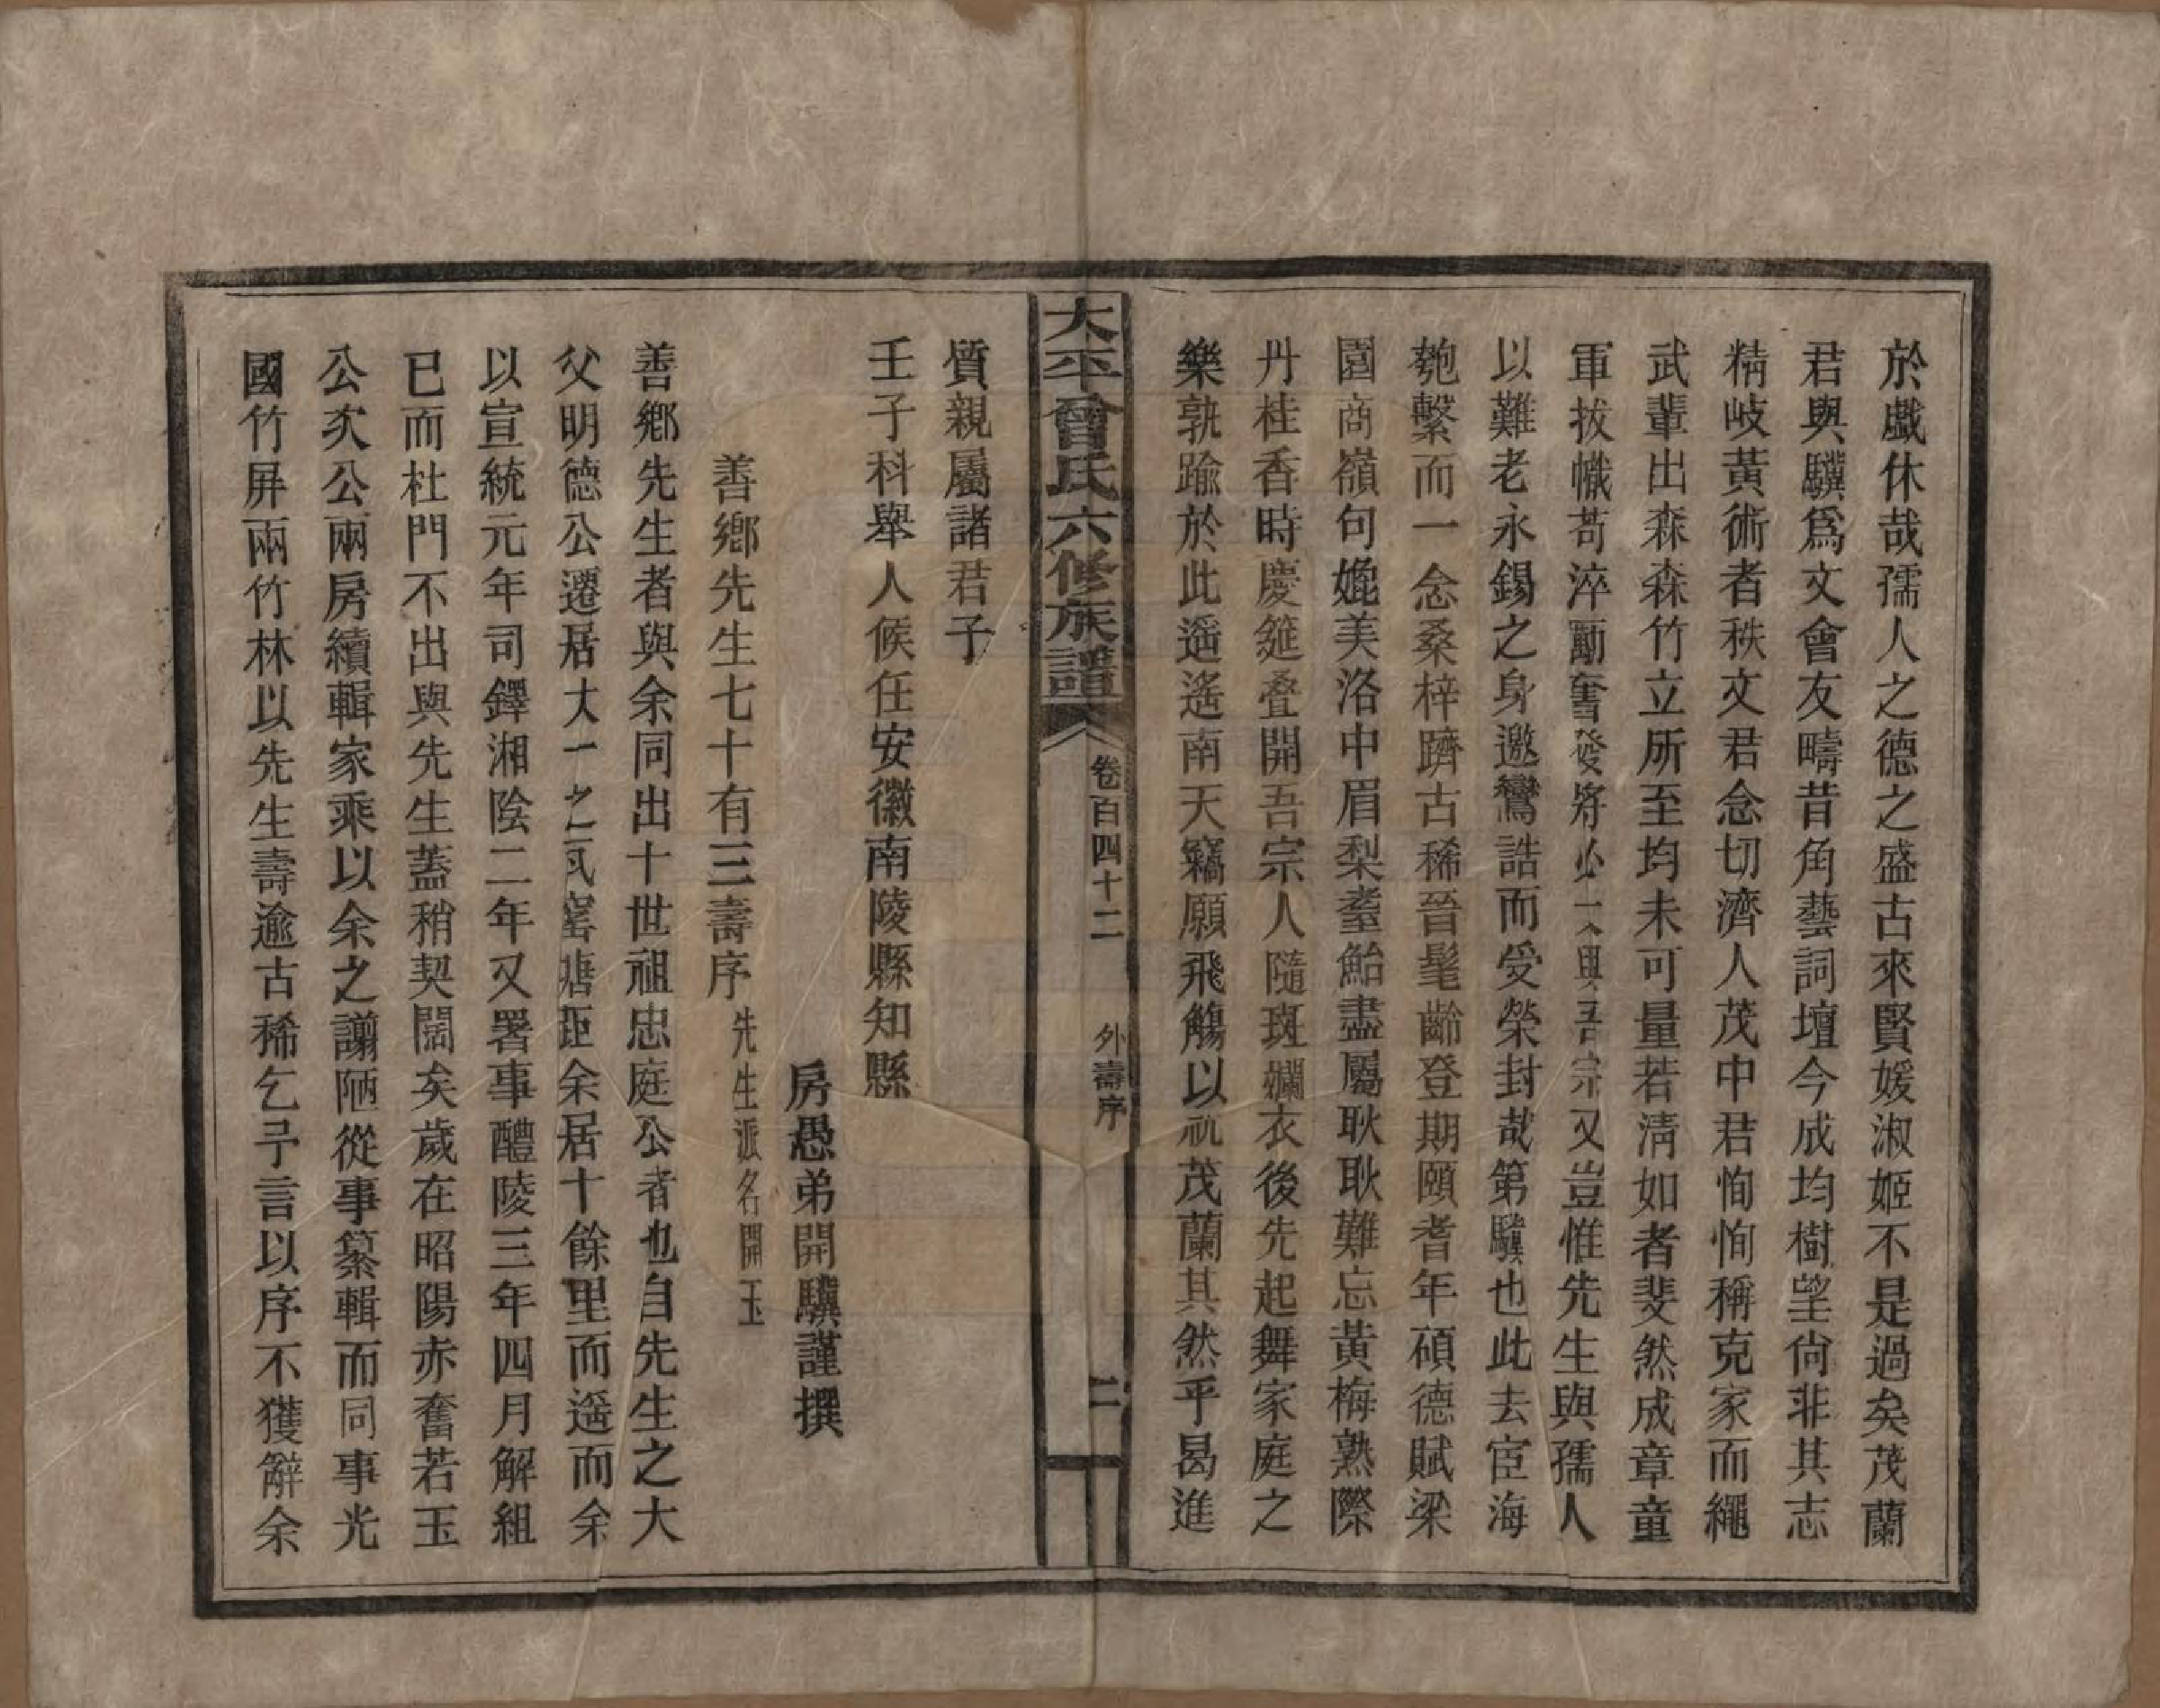 於戲休哉孺人之德之盛古來賢媛淑姬不是過矣茂蘭
君與驥爲文會友疇昔角藝詞壇今成均樹望尙非其志
精岐黃術者秩文君念切濟人茂中君恂恂稱克家而繩
武輩出森森竹立所至均未可量若淸如者斐然成章童
軍拔幟苟淬勵奮發將必大與吾宗又豈惟先生與孺人
以難老永錫之身邀鸞誥而受榮封哉第驥也此去宦海
匏繫而一念桑梓躋古稀晉髦齡登期頤耆年碩德賦梁
園商嶺句媲美洛中眉梨耋鮐盡屬耿耿難忘黃梅熟際
丹桂香時慶筵叠開吾宗人隨斑斕衣後先起舞家庭之
樂孰踰於此遥遥南天竊願飛觴以祝茂蘭其然乎曷進
大平曾氏六修族譜 卷百四十二 外壽序 二
質親屬諸君子
壬子科舉人候任安徽南陵縣知縣
房愚弟開驥謹撰
善鄉先生七十有三壽序 先生派名開玉
善鄉先生者與余同出十世祖忠庭公者也自先生之大
父明德公遷居大一之瓦窰塘距余居十餘里而遥而余
以宣統元年司鐸湘陰二年又署事醴陵三年四月解組
已而杜門不出與先生蓋稍契闊矣歲在昭陽赤奮若玉
公次公兩房續輯家乘以余之譾陋從事纂輯而同事光
國竹屏兩竹林以先生壽逾古稀乞予言以序不獲辭余